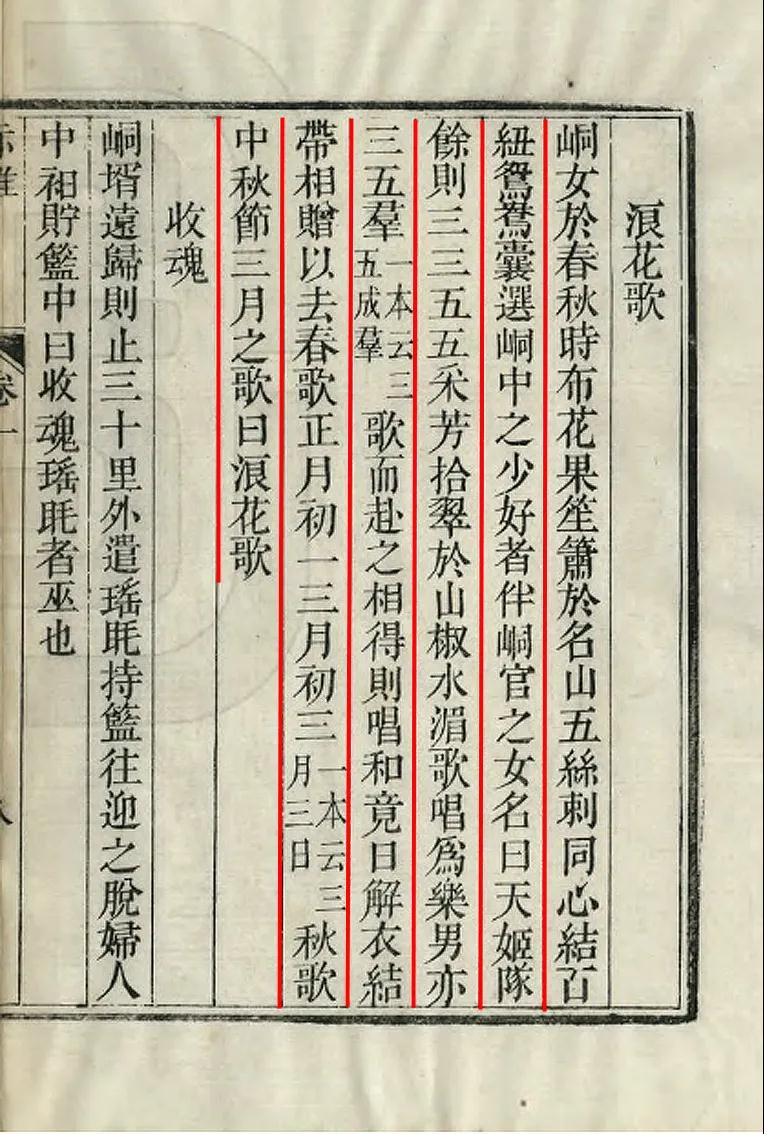 浪花歌
峒女於春秋時布花果笙簫於名山五絲刺同心結百
紐鴛鴦囊選峒中之少好者伴峒官之女名曰天姬隊
餘則三三五五采芳拾翠於山椒水湄歌唱爲樂男亦
三五羣一本云三五成羣歌而赴之相得則唱和竟日解衣結
帶相贈以去春歌正月初一三月初三一本云三月三日秋歌
中秋節三月之歌曰浪花歌
收魂
峒壻遠歸則止三十里外遣瑤𤱶持籃往迎之脫婦人
中衵貯籃中曰收魂瑤𤱶者巫也
卷一